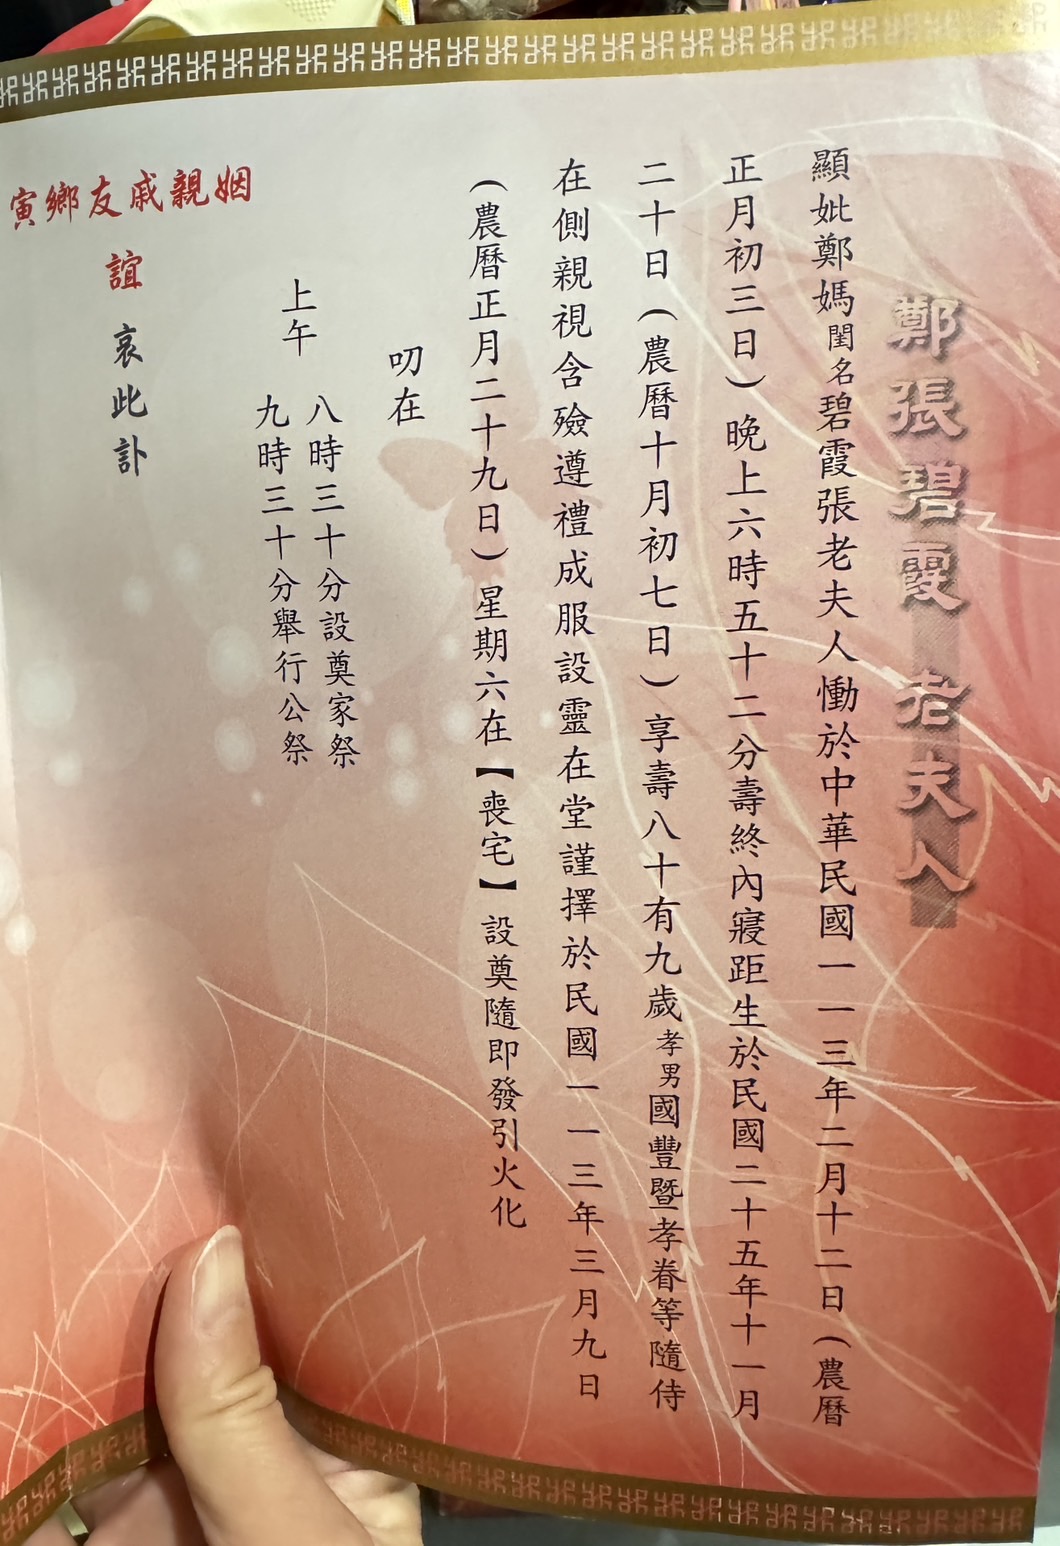 鄭張碧霞老夫人
顯妣鄭媽閨名碧霞張老夫人慟於中華民國一一三年二月十二日(農曆
正月初三日)晚上六時五十二分壽終內寢距生於民國二十五年十一月
二十日(農曆十月初七日)享壽八十有九歲孝男國豐暨孝眷等隨侍
在側親視含殮遵禮成服設靈在堂謹擇於民國一一三年三月九日
(農曆正月二十九日)星期六在【喪宅】設奠隨即發引火化
叨在
上午
八時三十分設奠家祭
九時三十分舉行公祭
姻親戚友鄉寅
誼
哀此訃